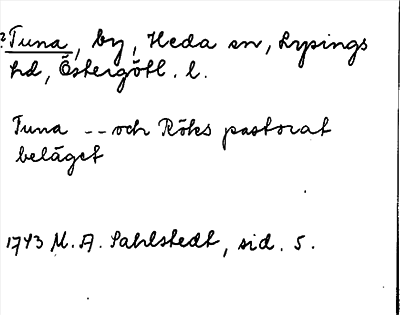 ? Tuna, by, Heda sn, Lysings
hd, Östergötl. l.
Tuna -- och Röks pastorat
beläget
1743 M. A. Sahlstedt, sid. 5.